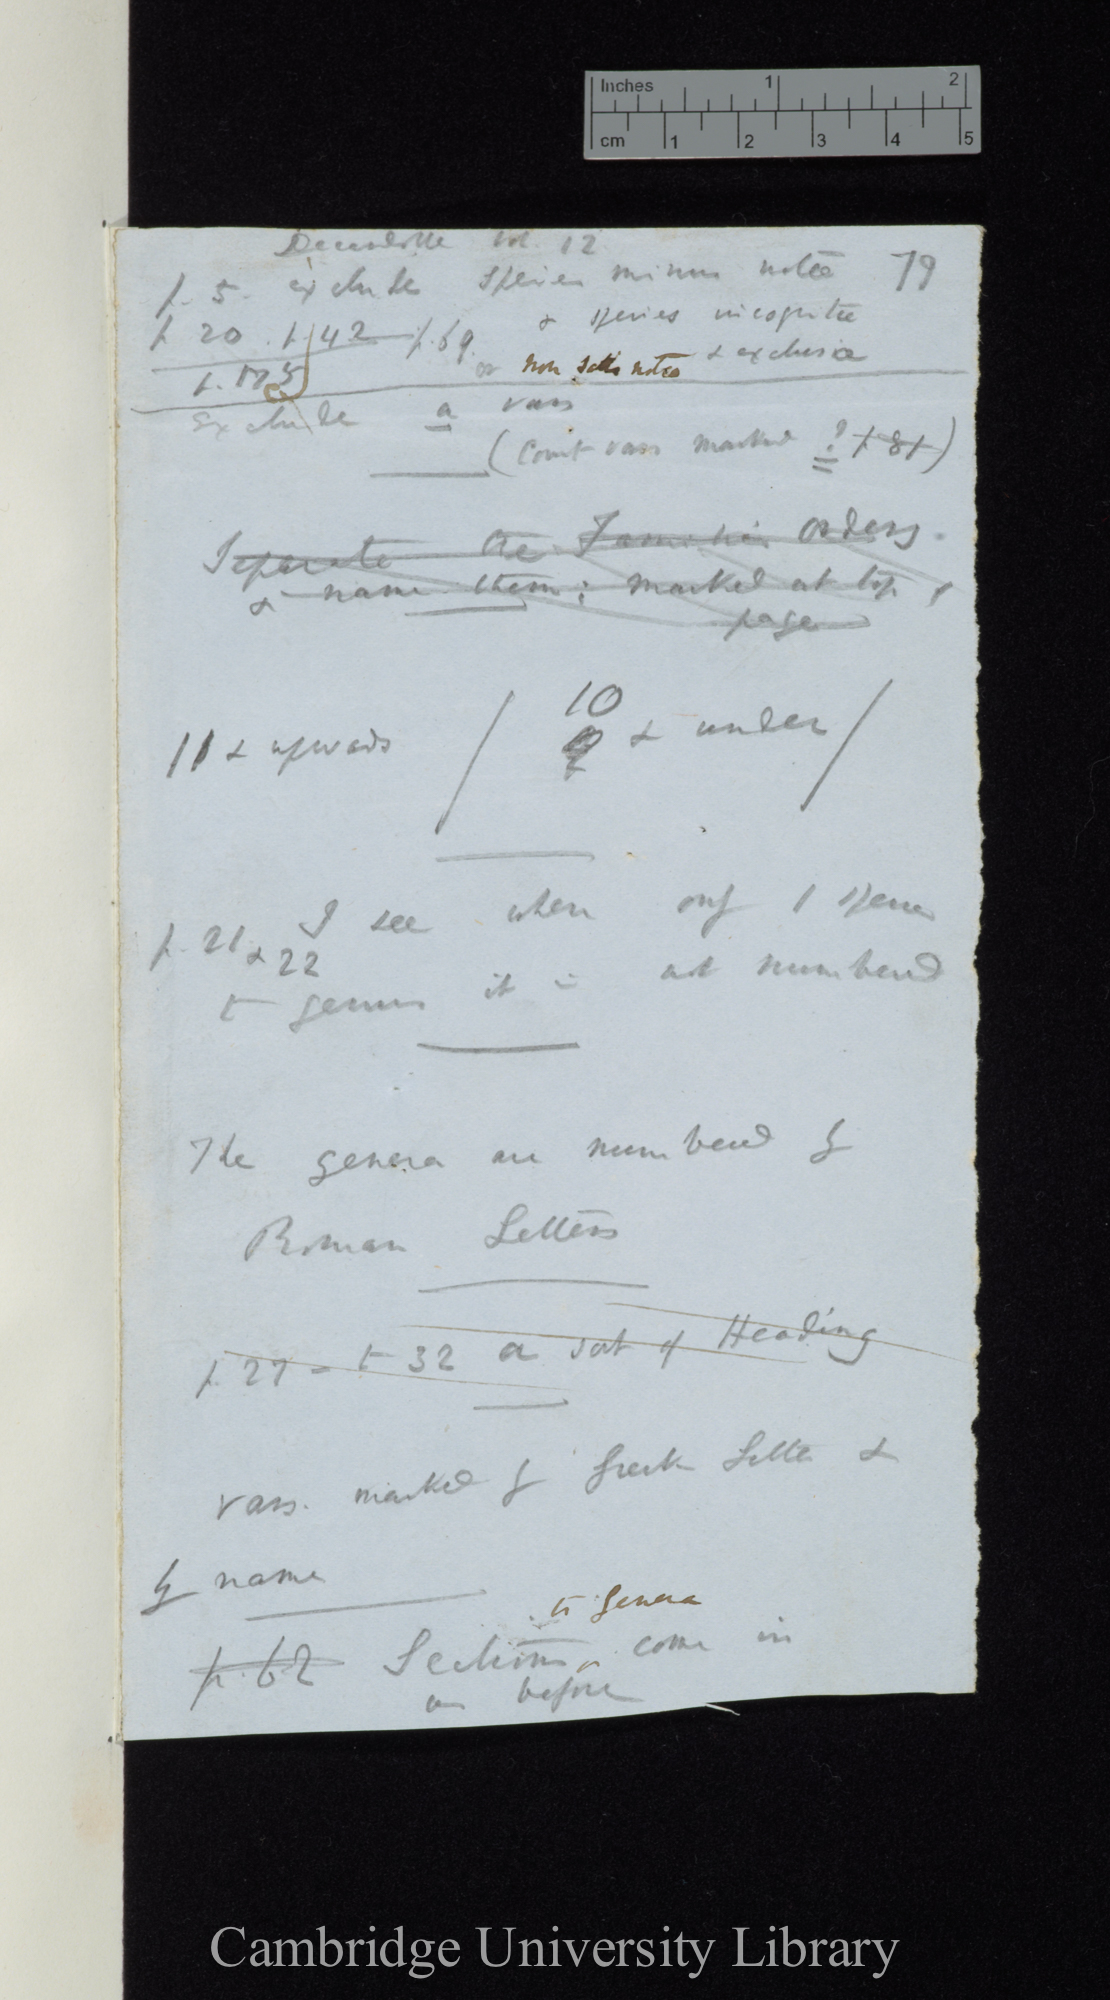 Inches 1 2
cm 1 2 3 4 5
Decandolle vol. 12
79
p. 5. exclude species minus notæ
p 20 . p 42 p. 69 & species incognitæ
or non satis notæ & exclusæ
p. 175
Exclude a vars
(Count vars marked ? p 81)
Separate the Families Orders.
& name them; marked at top
page
11 & upwards / 10
9 & under /
p. 21 & 22 I see when only 1 species
to genus it is not numbered
The genera are numbered by
Roman Letters
p. 27 – to 32 a sort of Heading
vars. marked by Greek Letter &
by name
to genera
p. 62 Sections come in
as before
Cambridge University Library